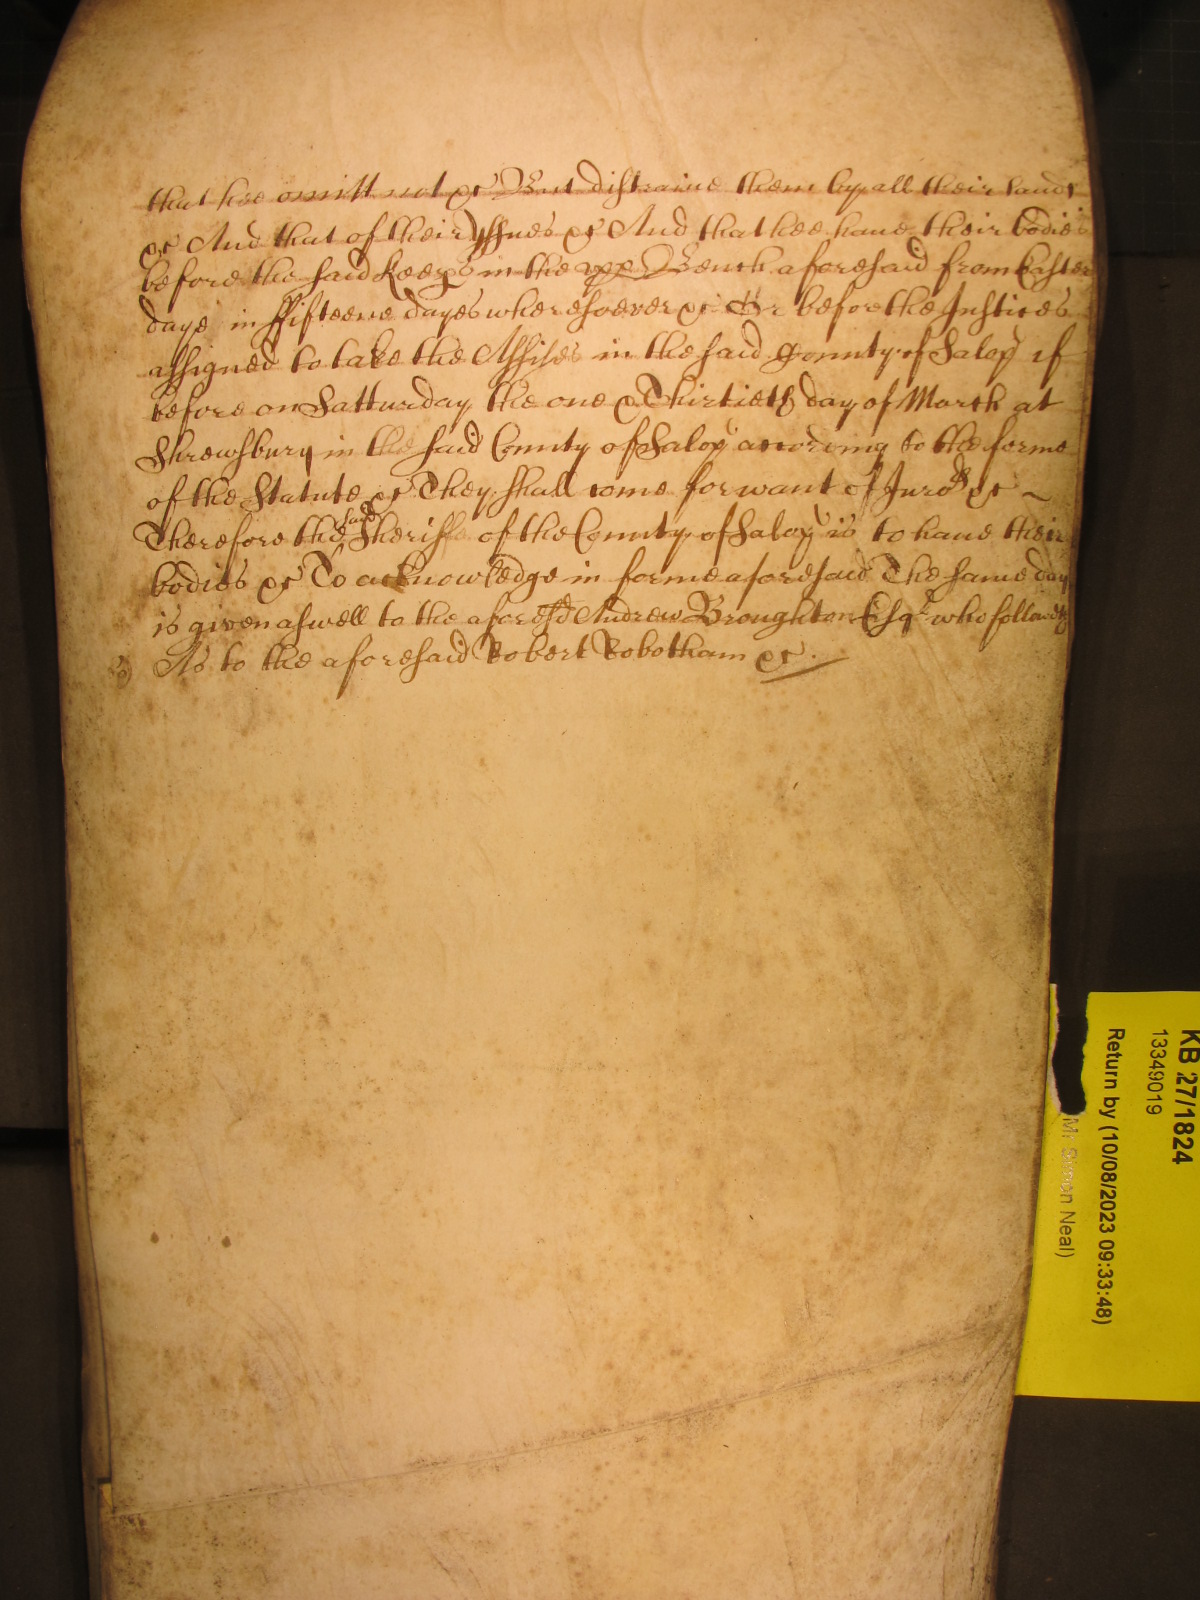 that hee omitt not &c But distraine them by all their lands
&c And that of their Issues &c And that hee haue their bodies
before the said Keep's in the upp Bench aforesaid from Easter
daye in ffifteene dayes wheresoever &c Or before the Justices
assigned to take the Assises in the said County of Salop if
before on Satturday the one & Thirtieth day of March at
Shrewsbury in the said County of Salop according to the forme
of the Statute &c They shall come for want of Juro's &c ~
Therefore the said Sheriffe of the County of Salop is to haue their
bodies &c To acknowledge in forme aforesaid The same day
is given aswell to the aforesd Andrew Broughton Esqr who followeth
As to the aforesaid Robert Robotham &c.
KB 27/1824
13349019
Return by (10/08/2023 09:33:48)
Mr Simon Neal)